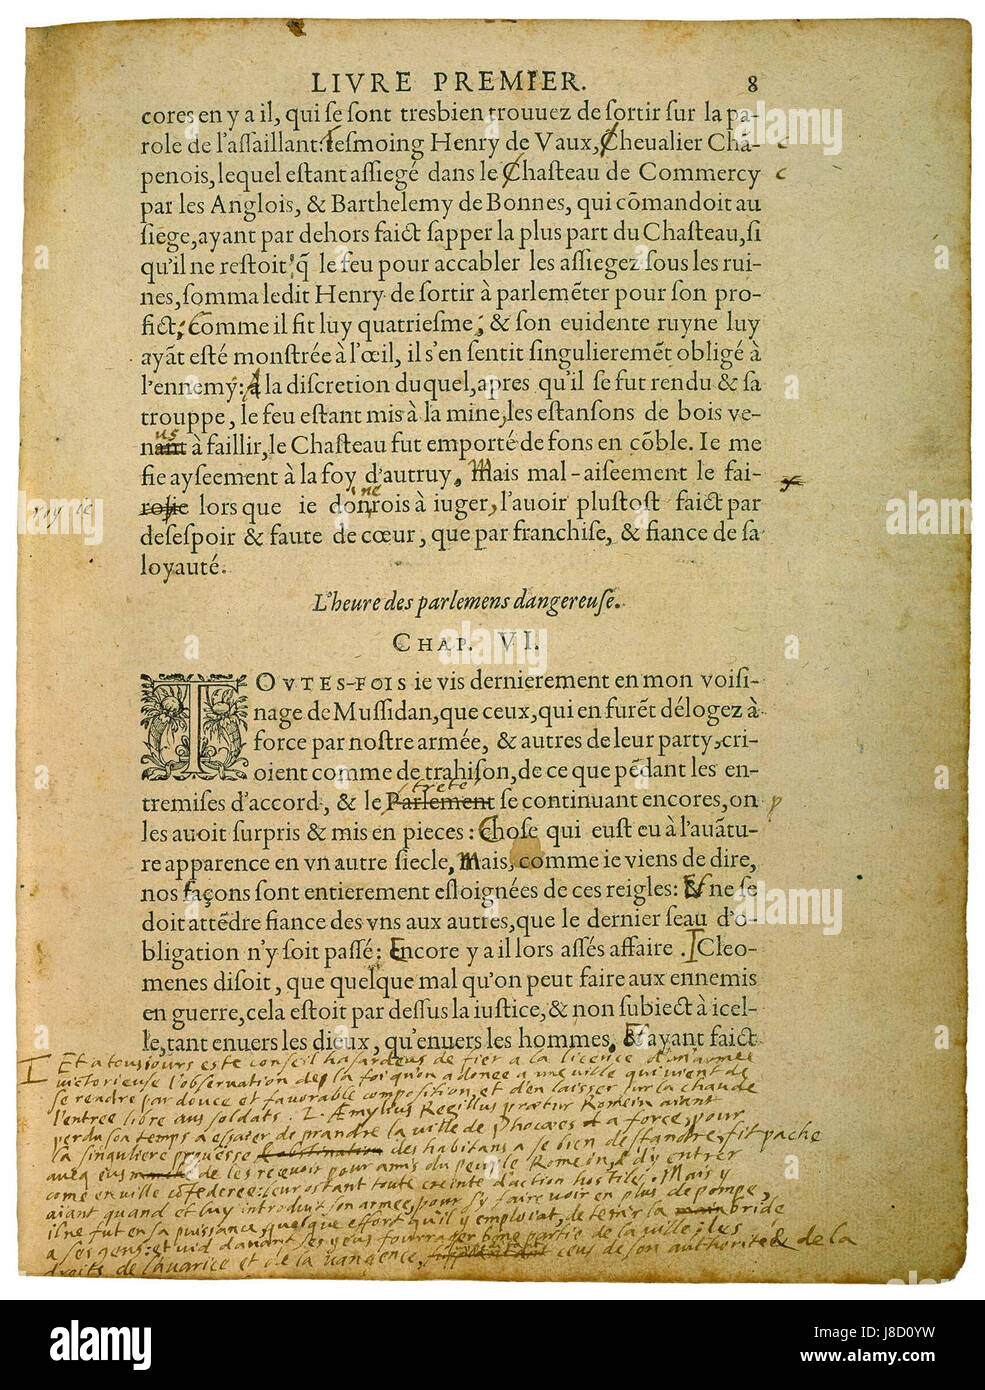 LIVRE PREMIER. 8
cores en y a il, qui se sont tresbien trouuez de sortir sur la pa-
role de l'assaillant: tesmoing Henry de Vaux, Cheualier Chã- c
penois, lequel estant assiegé dans le Chasteau de Commercy c
par les Anglois, & Barthelemy de Bonnes, qui cõmandoit au
siege, ayant par dehors faict sapper la plus part du Chasteau, si
qu'il ne restoit q̃ le feu pour accabler les assiegez sous les rui-
nes, somma ledit Henry de sortir à parlemẽter pour son pro-
fict; Comme il fit luy quatriesme; & son euidente ruyne luy
ayãt esté monstrée à l'œil, il s'en sentit singulieremẽt obligé à
l'ennemy: a la discretion duquel, apres qu'il se fut rendu & sa
trouppe, le feu estant mis à la mine, les estansons de bois ve-
us
nant à faillir, le Chasteau fut emporté de fons en cõble. Ie me
fie ayseement à la foy d'autruy, Mais mal-aiseement le fai-
roy ie
lors que ie donrois à iuger, l'auoir plustost faict par
desespoir & faute de cœur, que par franchise, & fiance de sa
loyauté.
L'heure des parlemens dangereuse.
CHAP. VI.
TOVTES-FOIS ie vis dernierement en mon voisi-
nage de Mussidan, que ceux, qui en furẽt délogez à
force par nostre armée, & autres de leur party, cri-
oient comme de trahison, de ce que pẽdant les en-
trete
tremises d'accord, & le Parlement se continuant encores, on p
les auoit surpris & mis en pieces: Chose qui eust eu à l'auãtu-
re apparence en vn autre siecle, Mais, comme ie viens de dire,
nos façons sont entierement esloignées de ces reigles: Et ne se
doit attẽdre fiance des vns aux autres, que le dernier seau d'o-
bligation n'y soit passé: Encore y a il lors assés affaire. I Cleo-
menes disoit, que quelque mal qu'on peut faire aux ennemis
en guerre, cela estoit par dessus la iustice, & non subiect à icel-
le, tant enuers les dieux, qu'enuers les hommes. Et ayant faict
I Et a tousiours este conseil hasardeus de fier a la licence d'un'armee
victorieuse l'obseruation de la foi qu'on a donee a une ville qui vient de
se rendre par douce et favorable composition et d'en laisser sur la chaude
l'entree libre aus soldats. L. Æmylius Regillus prætur Romein aiant
perdu son temps a essaier de prandre la ville de Phocæes a force, pour
la singuliere prouesse l'obstination des habitans a se bien defandre, fit pache
aueq eus de les recevoir pour amis du peuple Romein, & d'y entrer
come en ville cõfederee: leur ostant toute creinte d'action hostile. Mais y
aiant quand et luy introduit son armee, pour s'y faire voir en plus de pompe,
il ne fut en sa puissance, quelque effort qu'il y emploiat, de tenir la main bride
a ses gens: et vid davant ses yeus fourrager bone partie de la ville: les
droits de l'auarice et de la vangence, ceus de son authorite & de la
alamy stock photo